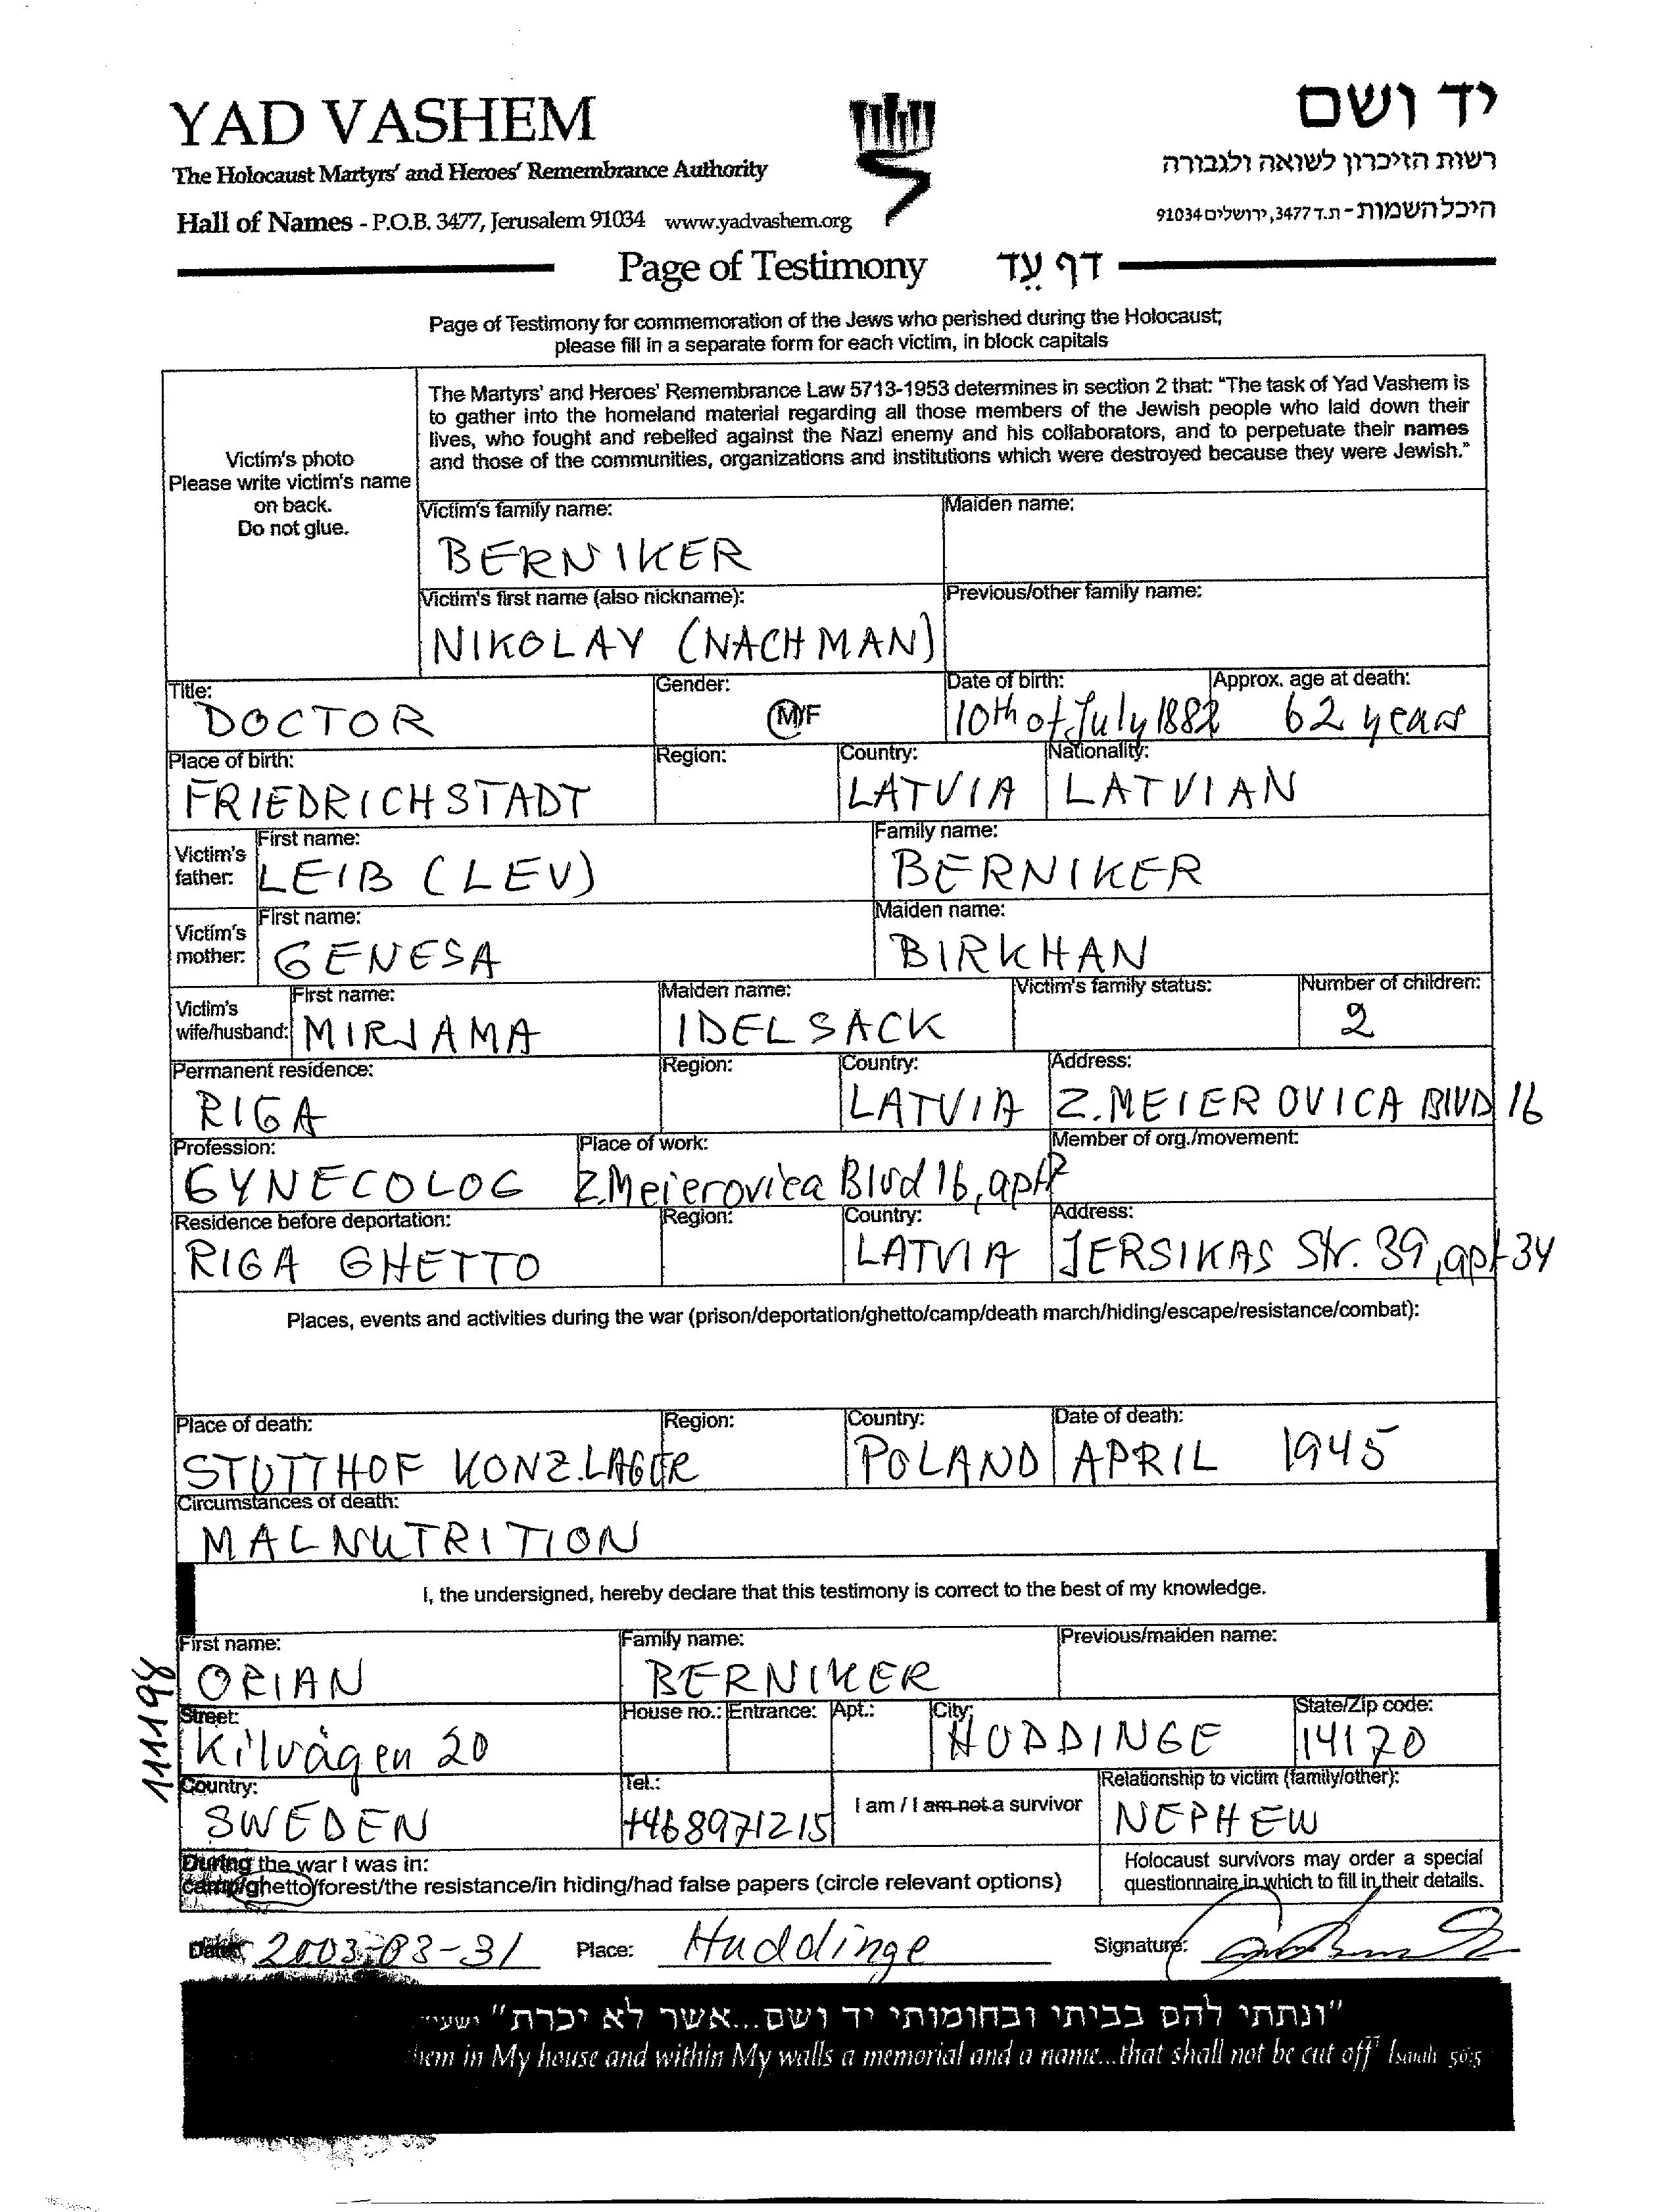 YAD VASHEM
יד ושם
The Holocaust Martyrs' and Heroes' Remembrance Authority
רשות הזיכרון לשואה ולגבורה
Hall of Names - P.O.B. 3477, Jerusalem 91034 www.yadvashem.org
היכל השמות - ת.ד 3477, ירושלים 91034
Page of Testimony דף עֵד
Page of Testimony for commemoration of the Jews who perished during the Holocaust;
please fill in a separate form for each victim, in block capitals
Victim's photo
Please write victim's name
on back.
Do not glue.
The Martyrs' and Heroes' Remembrance Law 5713-1953 determines in section 2 that: "The task of Yad Vashem is
to gather into the homeland material regarding all those members of the Jewish people who laid down their
lives, who fought and rebelled against the Nazi enemy and his collaborators, and to perpetuate their names
and those of the communities, organizations and institutions which were destroyed because they were Jewish."
Victim's family name: Maiden name:
BERNIKER
Victim's first name (also nickname): Previous/other family name:
NIKOLAY (NACHMAN)
Title: Gender: Date of birth: Approx. age at death:
DOCTOR M/F 10th of July 1882 62 years
Place of birth: Region: Country: Nationality:
FRIEDRICHSTADT LATVIA LATVIAN
Victim's father: First name: Family name:
LEIB (LEV) BERNIKER
Victim's mother: First name: Maiden name:
GENESA BIRKHAN
Victim's wife/husband: First name: Maiden name: Victim's family status: Number of children:
MIRJAMA IDELSACK 2
Permanent residence: Region: Country: Address:
RIGA LATVIA Z.MEIEROVICA BLVD 16
Profession: Place of work: Member of org./movement:
GYNECOLOG Z.Meierovica Blvd 16, apt 7
Residence before deportation: Region: Country: Address:
RIGA GHETTO LATVIA JERSIKAS Str. 39, apt 34
Places, events and activities during the war (prison/deportation/ghetto/camp/death march/hiding/escape/resistance/combat):
Place of death: Region: Country: Date of death:
STUTTHOF KONZ.LAGER POLAND APRIL 1945
Circumstances of death:
MALNUTRITION
I, the undersigned, hereby declare that this testimony is correct to the best of my knowledge.
First name: Family name: Previous/maiden name:
ORIAN BERNIKER
111198
Street: House no.: Entrance: Apt.: City: State/Zip code:
Kilvägen 20 HUDDINGE 14170
Country: Tel.: I am / I am not a survivor Relationship to victim (family/other):
SWEDEN +468971215 NEPHEW
During the war I was in:
camp/ghetto/forest/the resistance/in hiding/had false papers (circle relevant options)
Holocaust survivors may order a special
questionnaire in which to fill in their details.
Date: 2003-03-31 Place: Huddinge Signature:
"ונתתי להם בביתי ובחומותי יד ושם...אשר לא יכרת"
in My house and within My walls a memorial and a name...that shall not be cut off" Isaiah 56:5